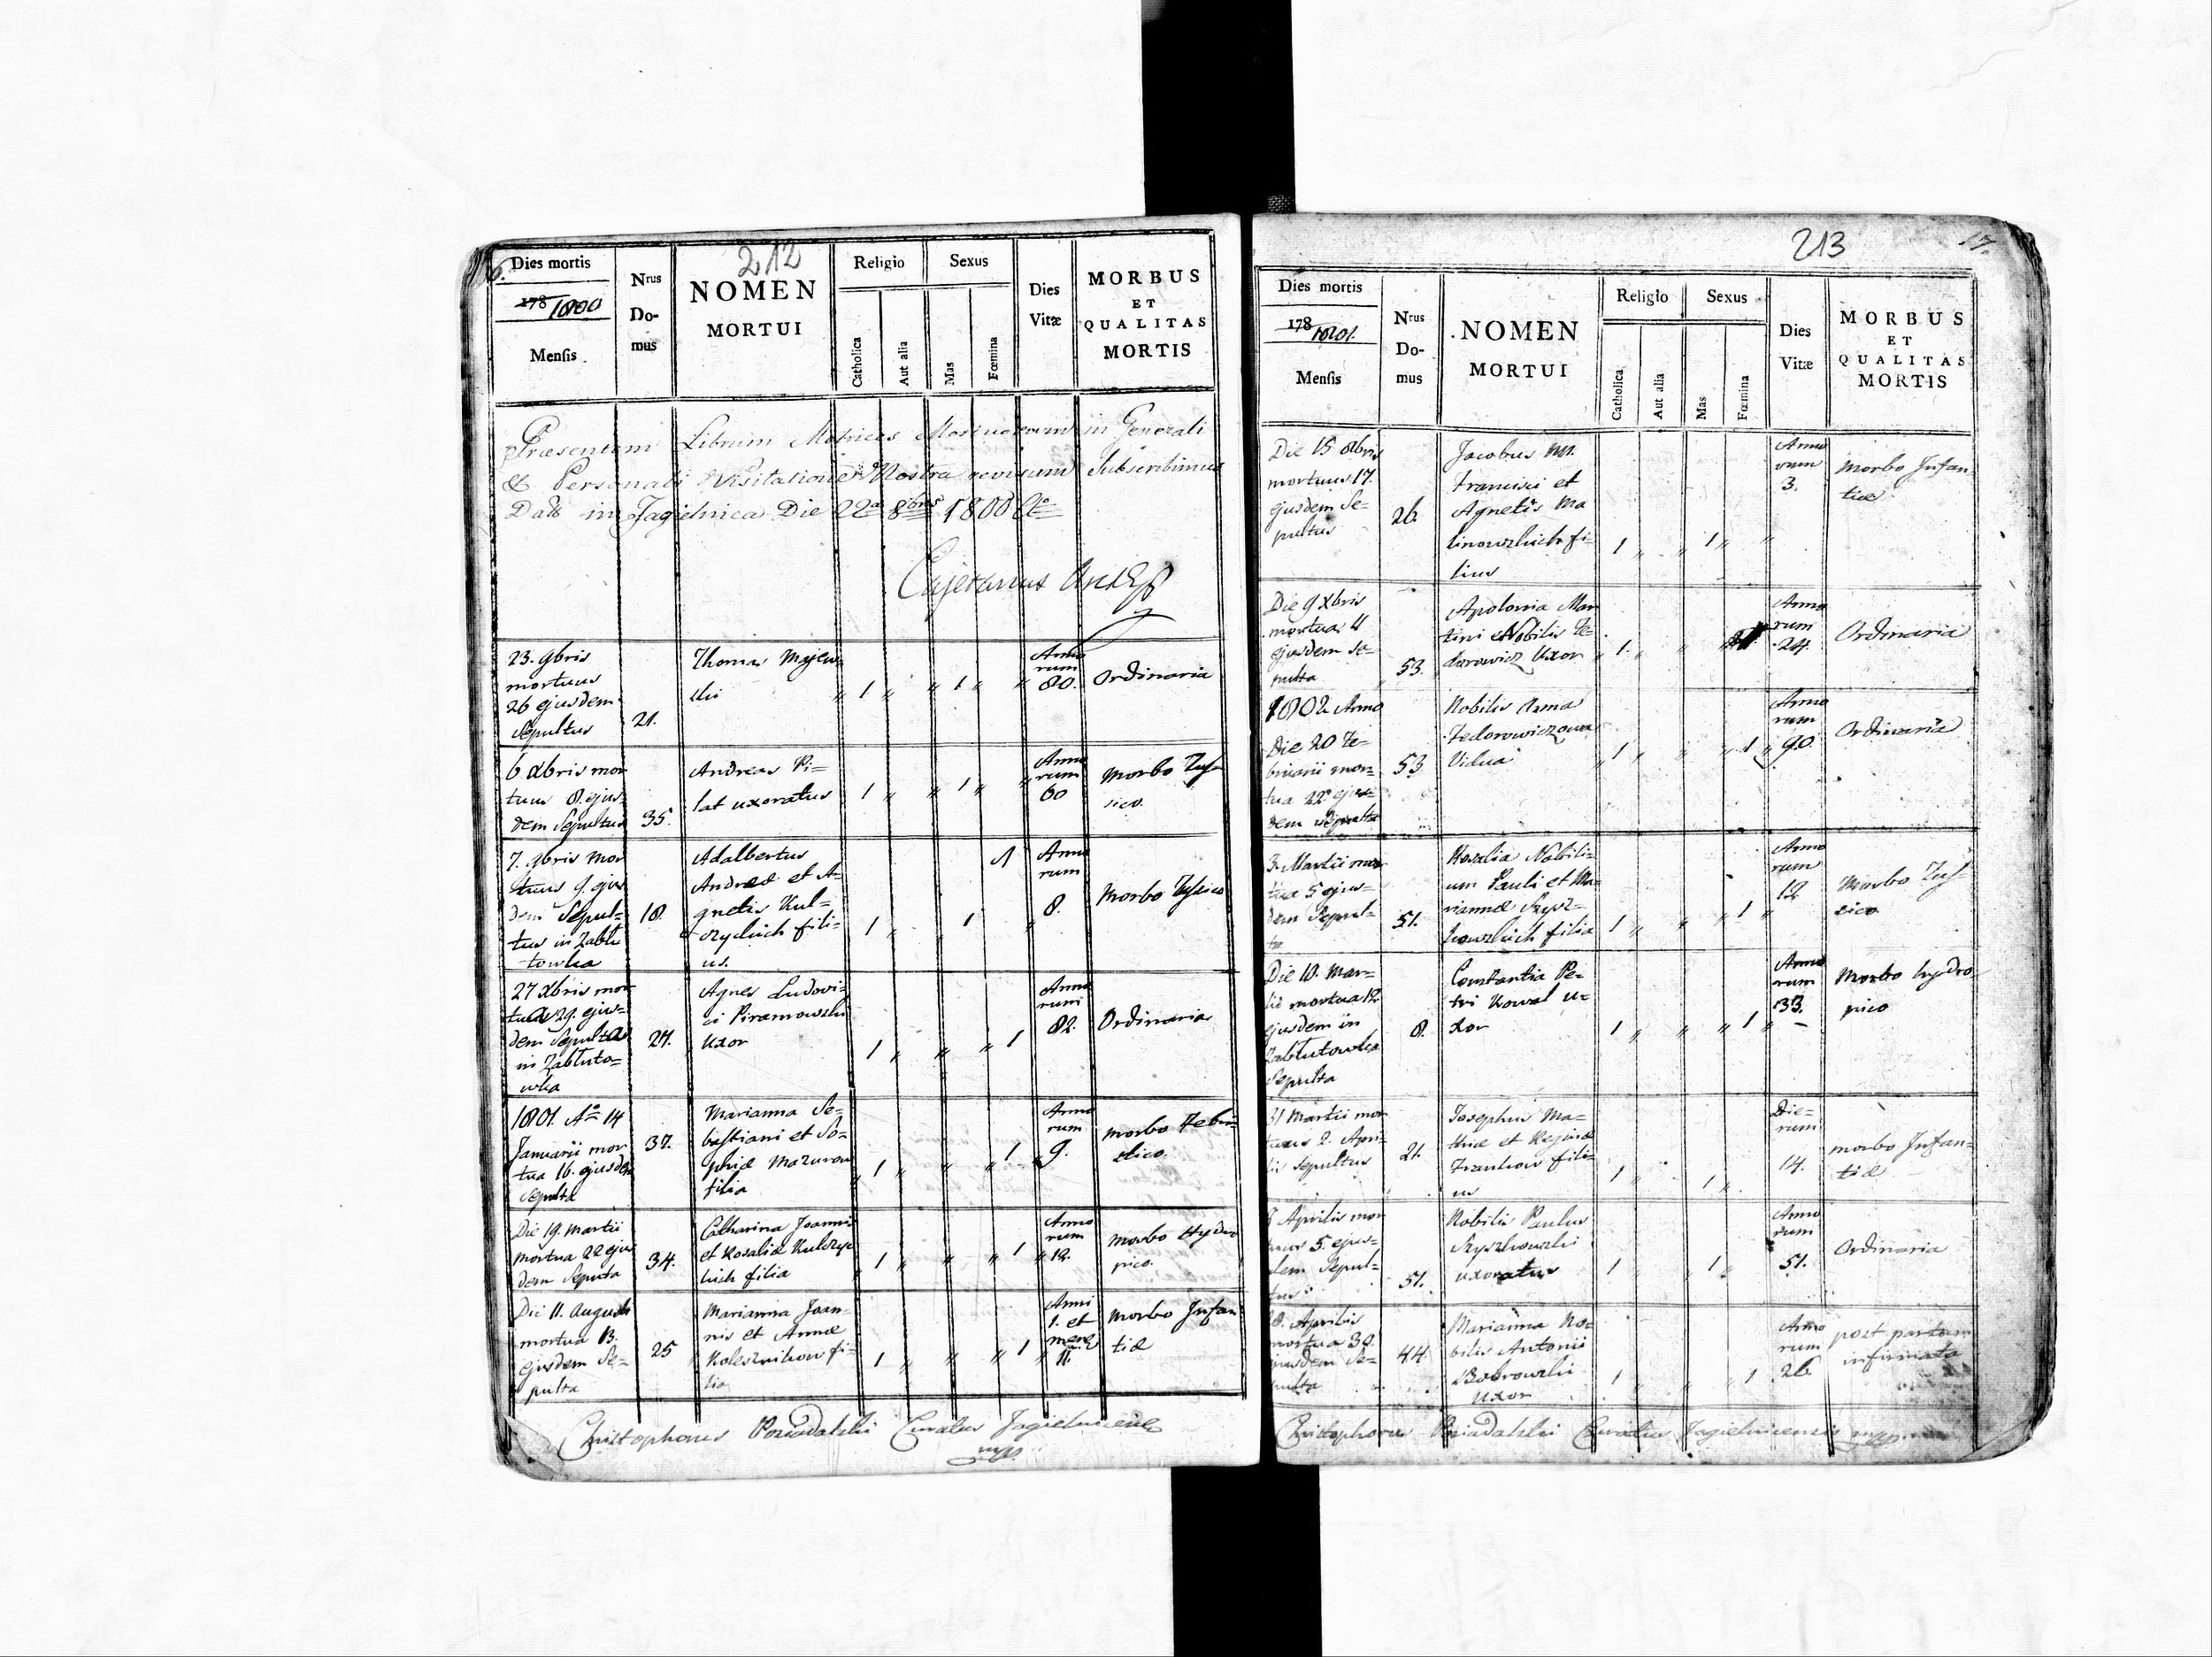 6.
212
Dies mortis
178 1800
Mensis.
Nrus
Do-
mus
NOMEN
MORTUI
Religio
Catholica
Aut alia
Sexus
Mas
Fœmina
Dies
Vitæ
MORBUS
ET
QUALITAS
MORTIS
Præsentem Librum Metrices Mortuorum in Generali
& Personali Visitatione Nostra revisum Subscribimus
in Jagielnica Die 22a 8bris 1800
Cajetanus
23. 9bris
mortuus
26 ejusdem
Sepultus
21.
Thomas Majew
ski
1
1
Anno
rum
80.
Ordinaria
6 Xbris mor
tuus 8. ejus
dem Sepultus
35.
Andreas Pi=
lat uxoratus
1
1
Anno
rum
60
Morbo Tys
sico
7. 9bris mor
tuus 9. ejus
dem Sepul=
tus in Zablu
towka
18.
Adalbertus
Andreæ et A=
gnetis Kul=
czyckich fili=
us.
1
1
1
Anno
rum
8.
Morbo Tysico
27 Xbris mor
tua 29. ejus=
dem Sepulta
in Zabluto=
wka
27.
Agnes Ludovi=
ci Piramowski
Uxor
1
1
Anno
rum
82.
Ordinaria
1801. Ao 14
Januarii mor
tua 16. ejusdem
Sepulta
37.
Marianna Se=
bastiani et So=
phiæ Mazurow
filia
1
1
Anno
rum
9.
morbo
Die 19. Martii
mortua 22 ejus
dem Sepulta
34.
Catharina Joannis
et Rosaliæ Kulczyc
kich filia
1
1
Anno
rum
12.
morbo Hydro
pico.
Die 11. Augusti
mortua 13.
ejusdem Se=
pulta
25
Marianna Joan=
nis et Annæ
Kolesnikow fi=
lia
1
1
Anni
1. et
mens
11.
Morbo Infan
tiæ
Christophorus Curatus Jagielnicensis
mpp.
213
17.
Dies mortis
178 1801.
Mensis
Nrus
Do-
mus
NOMEN
MORTUI
Religio
Catholica
Aut alia
Sexus
Mas
Fœmina
Dies
Vitæ
MORBUS
ET
QUALITAS
MORTIS
Die 15 8bris
mortuus 17.
ejusdem Se=
pultus
26.
Jacobus
Francisci et
Agnetis Ma
linowskich fi=
lius
1
1
Anno
rum
3.
Morbo Infan
tiæ
Die 9 Xbris
mortua 11
ejusdem Se=
pulta
53.
Apolonia Mar
tini Nobilis Fe=
dorowicz Uxor
1
1
Anno
rum
24.
Ordinaria
1802 Anno
Die 20 Fe=
bruarii mor=
tua 22 ejus=
dem Sepulta
53
Nobilis Anna
Fedorowiczowa
Vidua
1
1
Anno
rum
90.
Ordinaria
3. Martii mor
tua 5 ejus=
dem Sepul=
ta
51.
Rosalia Nobili=
um Pauli et Ma=
riannæ Szysz=
kowskich filia
1
1
Anno
rum
12
Morbo Tys
sico
Die 10. Mar=
tii mortua 12
ejusdem in
Zablutowka
Sepulta
8.
Constantia Pe=
tri Kowal u=
xor
1
1
Anno
rum
33.
Morbo hydro
pico
31 Martii mor
tuus 2. Apri=
lis Sepultus
21.
Josephus Ma=
thiæ et Reginæ
Frankow fili=
us
1
1
Die=
rum
14.
morbo Infan=
tiæ
Aprilis mor
tuus 5. ejus=
dem Sepul=
tus
51.
Nobilis Paulus
Szyszkowski
uxoratus
1
1
Anno
rum
51.
Ordinaria
Aprilis
mortua 30.
ejusdem Se=
pulta
44.
Marianna No=
bilis Antonii
Bobrowski
Uxor
1
1
Anno
rum
26.
post partum
infirmata
Christophorus Curatus Jagielnicensis mpp.